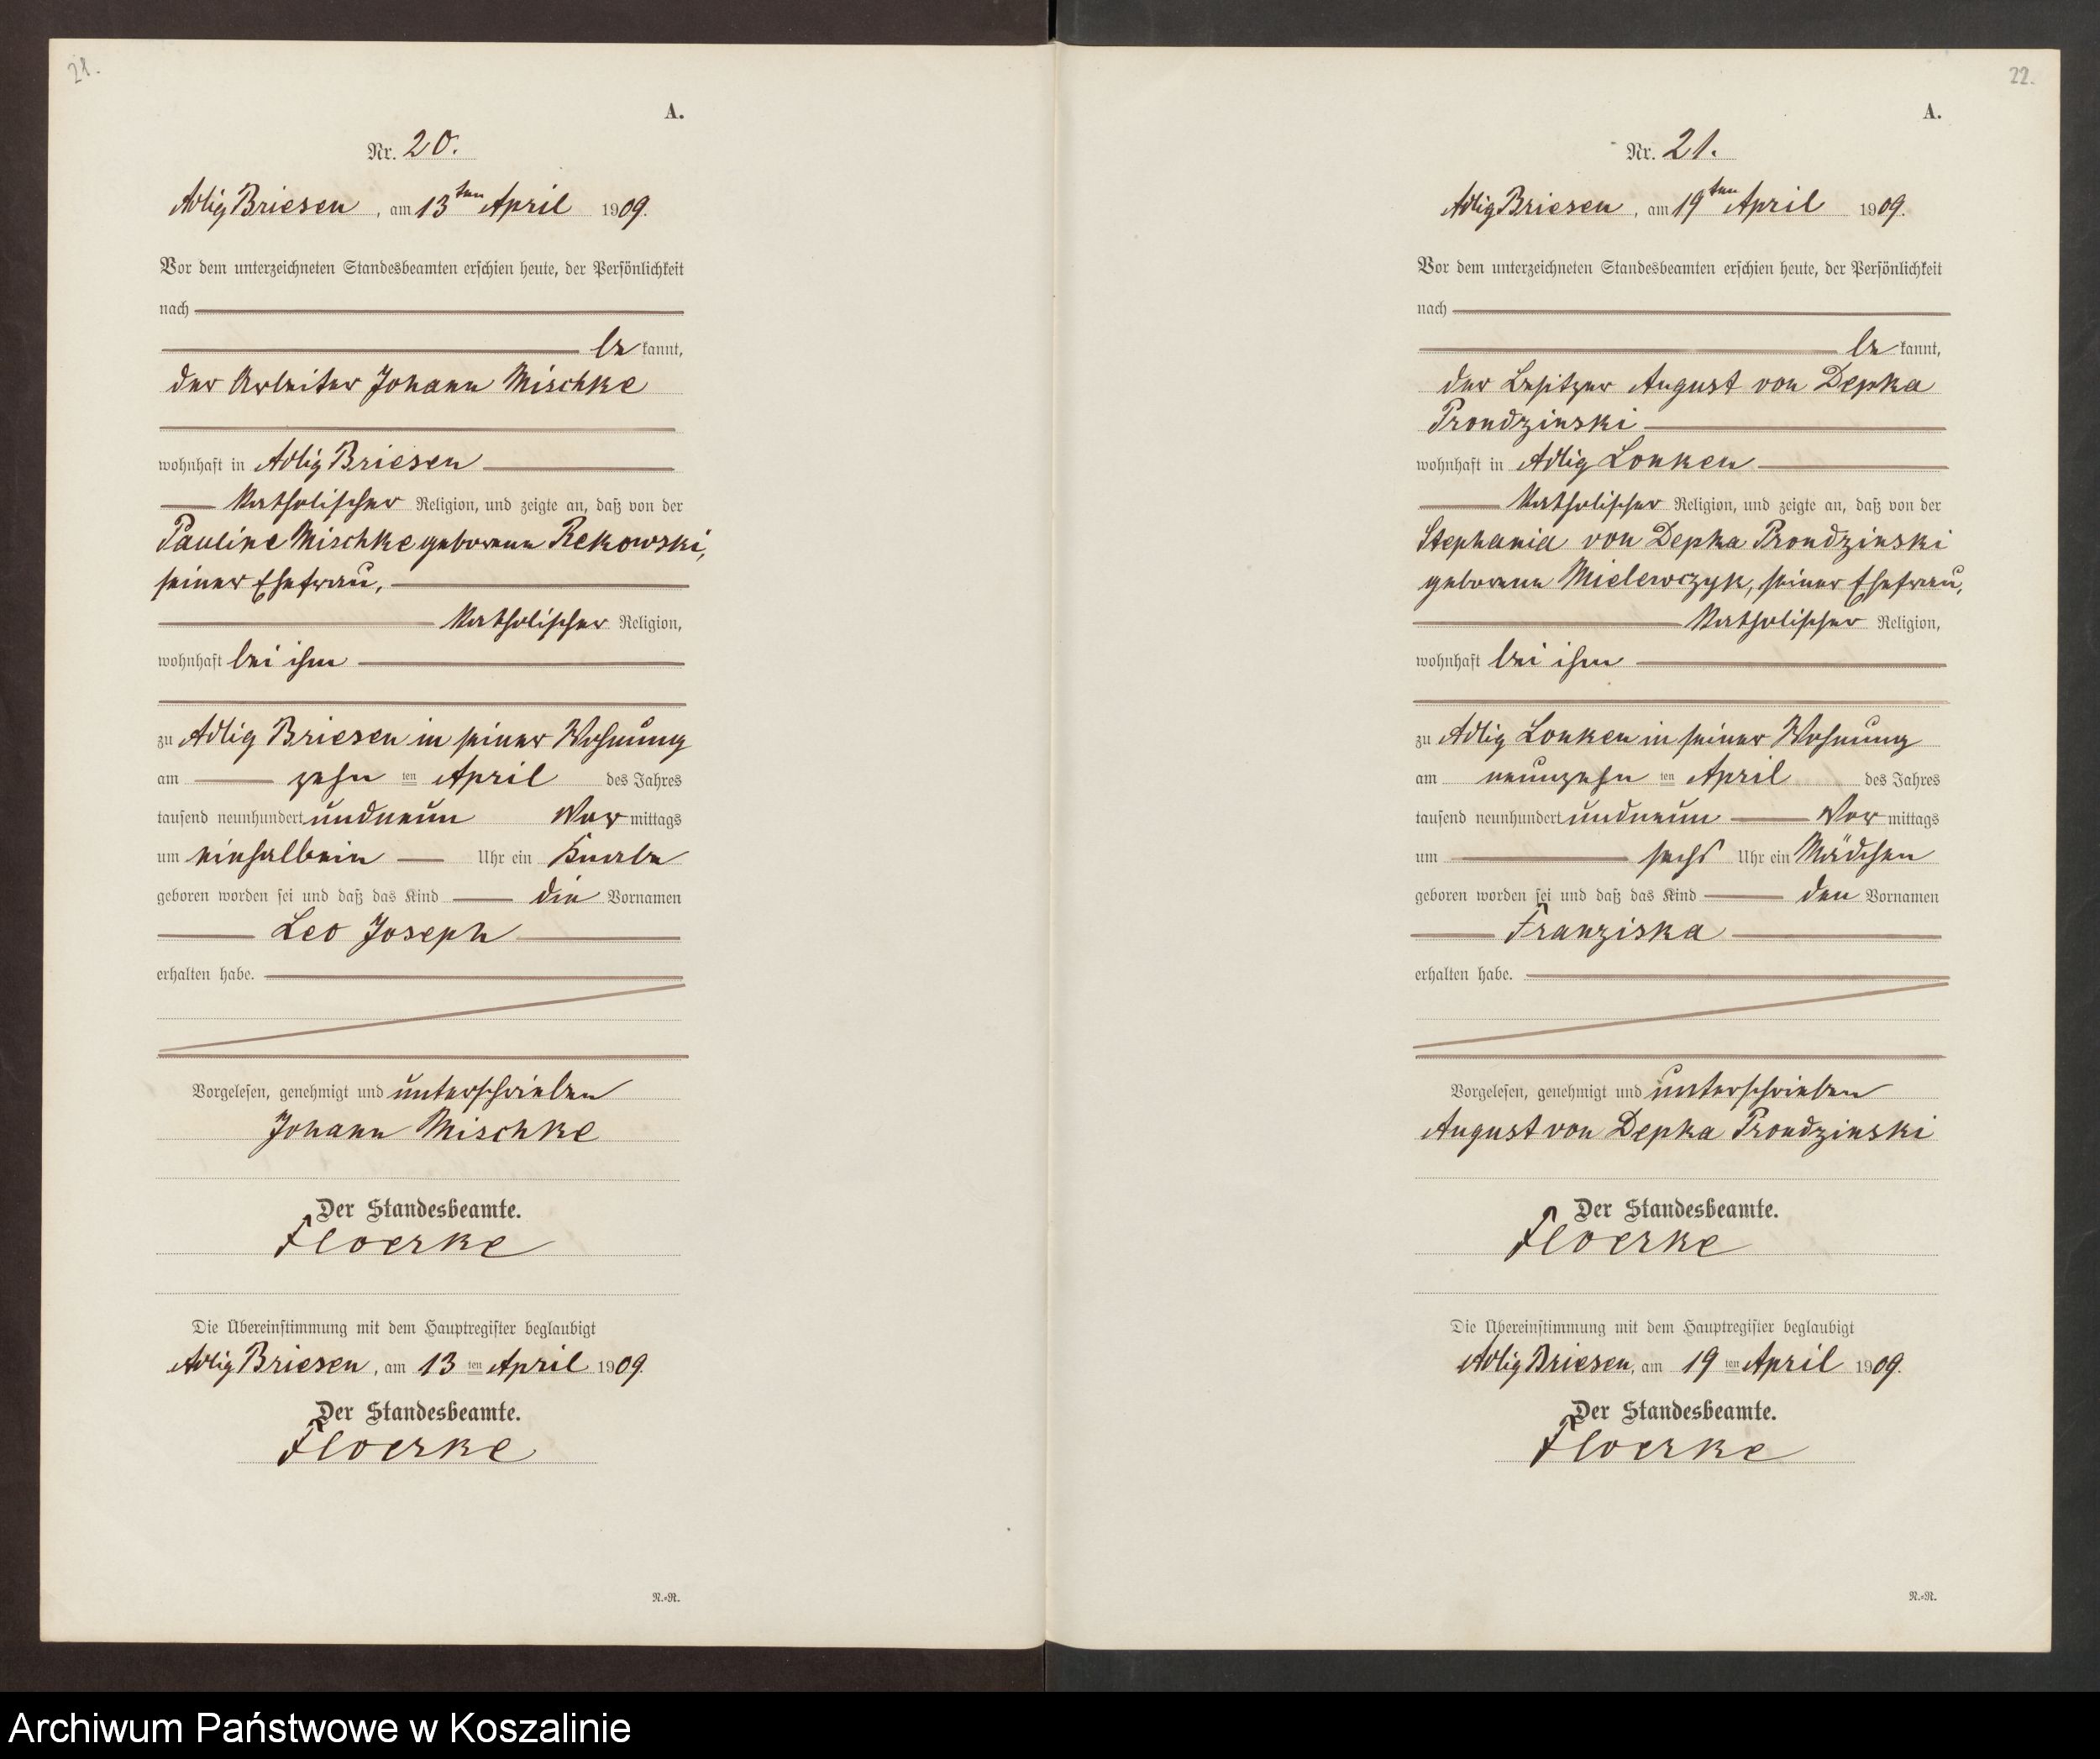 21.
A.
Nr. 20.
Adlig Briesen, am 13ten April 1909.
Vor dem unterzeichneten Standesbeamten erschien heute, der Persönlichkeit
nach
be kannt,
der Arbeiter Johann Mischke
wohnhaft in Adlig Briesen
katholischer Religion, und zeigte an, daß von der
Pauline Mischke geborene Rekowski,
seiner Ehefrau,
katholischer Religion,
wohnhaft bei ihm
zu Adlig Briesen in seiner Wohnung
am zehn ten April des Jahres
tausend neunhundert undneun Vor mittags
um einhalbein Uhr ein Knabe
geboren worden sei und daß das Kind die Vornamen
Leo Joseph
erhalten habe.
Vorgelesen, genehmigt und unterschrieben
Johann Mischke
Der Standesbeamte.
Floerke
Die Übereinstimmung mit dem Hauptregister beglaubigt
Adlig Briesen, am 13 ten April 1909.
Der Standesbeamte.
Floerke
R.=R.
22.
A.
Nr. 21.
Adlig Briesen, am 19ten April 1909.
Vor dem unterzeichneten Standesbeamten erschien heute, der Persönlichkeit
nach
be kannt,
der Besitzer August von Depka
Prondzinski
wohnhaft in Adlig Lonken
katholischer Religion, und zeigte an, daß von der
Stephania von Depka Prondzinski
geborene Mielewczyk, seiner Ehefrau,
katholischer Religion,
wohnhaft bei ihm
zu Adlig Lonken in seiner Wohnung
am neunzehn ten April des Jahres
tausend neunhundert undneun Vor mittags
um sechs Uhr ein Mädchen
geboren worden sei und daß das Kind den Vornamen
Franziska
erhalten habe.
Vorgelesen, genehmigt und unterschrieben
August von Depka Prondzinski
Der Standesbeamte.
Floerke
Die Übereinstimmung mit dem Hauptregister beglaubigt
Adlig Briesen, am 19 ten April 1909.
Der Standesbeamte.
Floerke
R.=R.
Archiwum Państwowe w Koszalinie